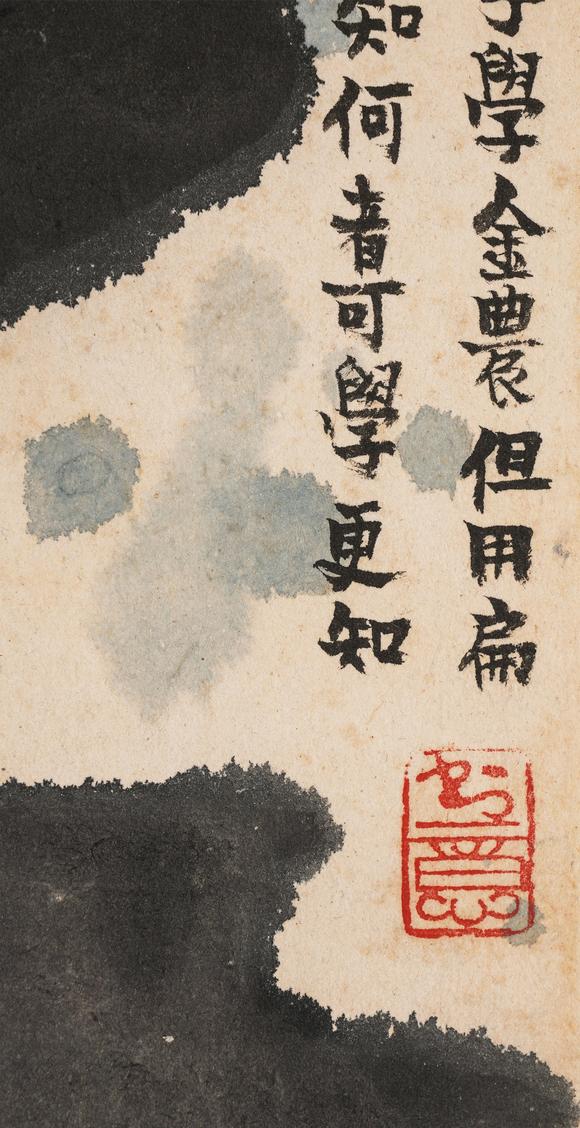 學金農但用扁
知何者可學更知